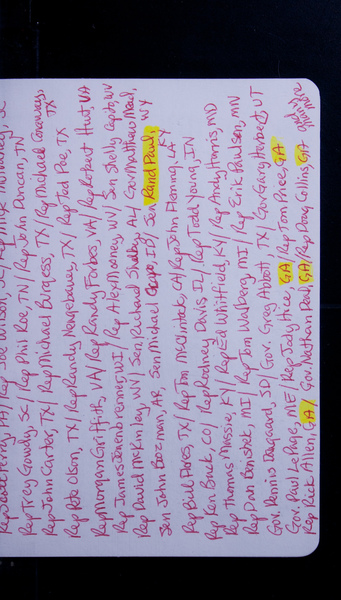 Rep Scott Perry, PA/ Rep Joe Wilson, SC/ Rep Mick Mulvaney, SC
Rep Trey Gowdy SC/ Rep Phil Roe, TN/ Rep John Duncan, TN
Rep John Carter, TX/ Rep Michael Burgess, TX/ Rep Michael Conaway, TX
Rep Pete Olson, TX/ Rep Randy Neugebauer, TX/ Rep Ted Poe, TX
Rep Morgan Griffith, VA/ Rep Randy Forbes, VA/ Rep Robert Hurt, VA
Rep James Sensenbrenner, WI/ Rep Alex Mooney, WV/ Sen Shelly Capito, WV
Rep David McKinley, WV/ Sen Richard Shelby, AL/ Gov Matthew Mead, WY
Sen John Boozman, AR, Sen Michael Crapo, ID/ Sen Rand Paul, KY
Rep Bill Flores, TX/ Rep Tom McClintock, CA/ Rep John Fleming, LA
Rep Ken Buck, CO/ Rep Rodney Davis IL/ Rep Todd Young, IN
Rep Thomas Massie, KY/ Rep Ed Whitfield, KY/ Rep Andy Harris, MD
Rep Dan Benishek, MI/ Rep Tom Walberg, MI/ Rep Erik Paulsen, MN
Gov. Dennis Daugaard, SD/ Gov. Greg Abbott, TX/ Gov Gary Herbert, UT
Gov. Paul LePage, ME/ Rep Jody Hice, GA/ Rep Tom Price, GA
Rep Rick Allen, GA/ Gov Nathan Deal GA/ Rep Doug Collins, GA